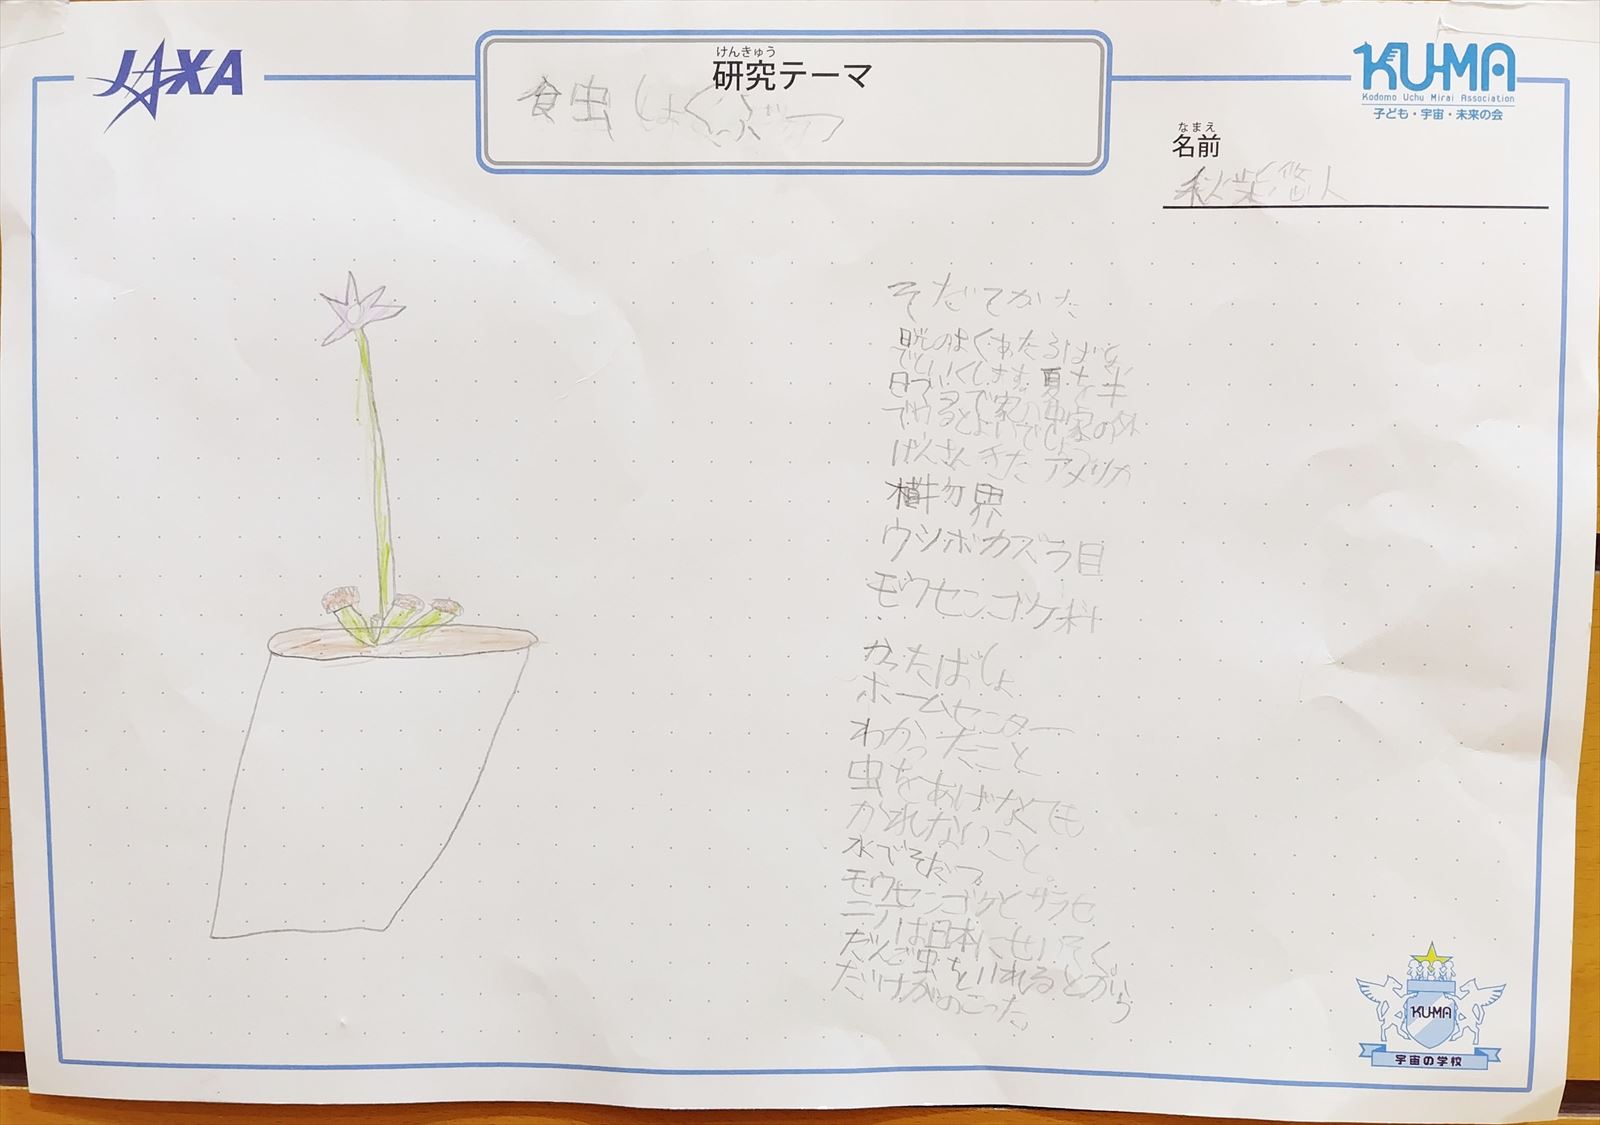 JAXA
けんきゅう
研究テーマ
食虫しょくぶつ
KU-MA
Kodomo Uchu Mirai Association
子ども・宇宙・未来の会
なまえ
名前
秋柴悠人
そだてかた
日光のよくあたるばしょ
げんさん きた アメリカ
植物界
ウツボカズラ目
モウセンゴケ科
かったばしょ
ホームセンター
わかったこと
虫をあげなくても
かれないこと。
水でそだつ。
モウセンゴケとサラセ
ニアは日本にせいそく
だんご虫をいれるとがら
だけがのこった。
KU-MA
宇宙の学校